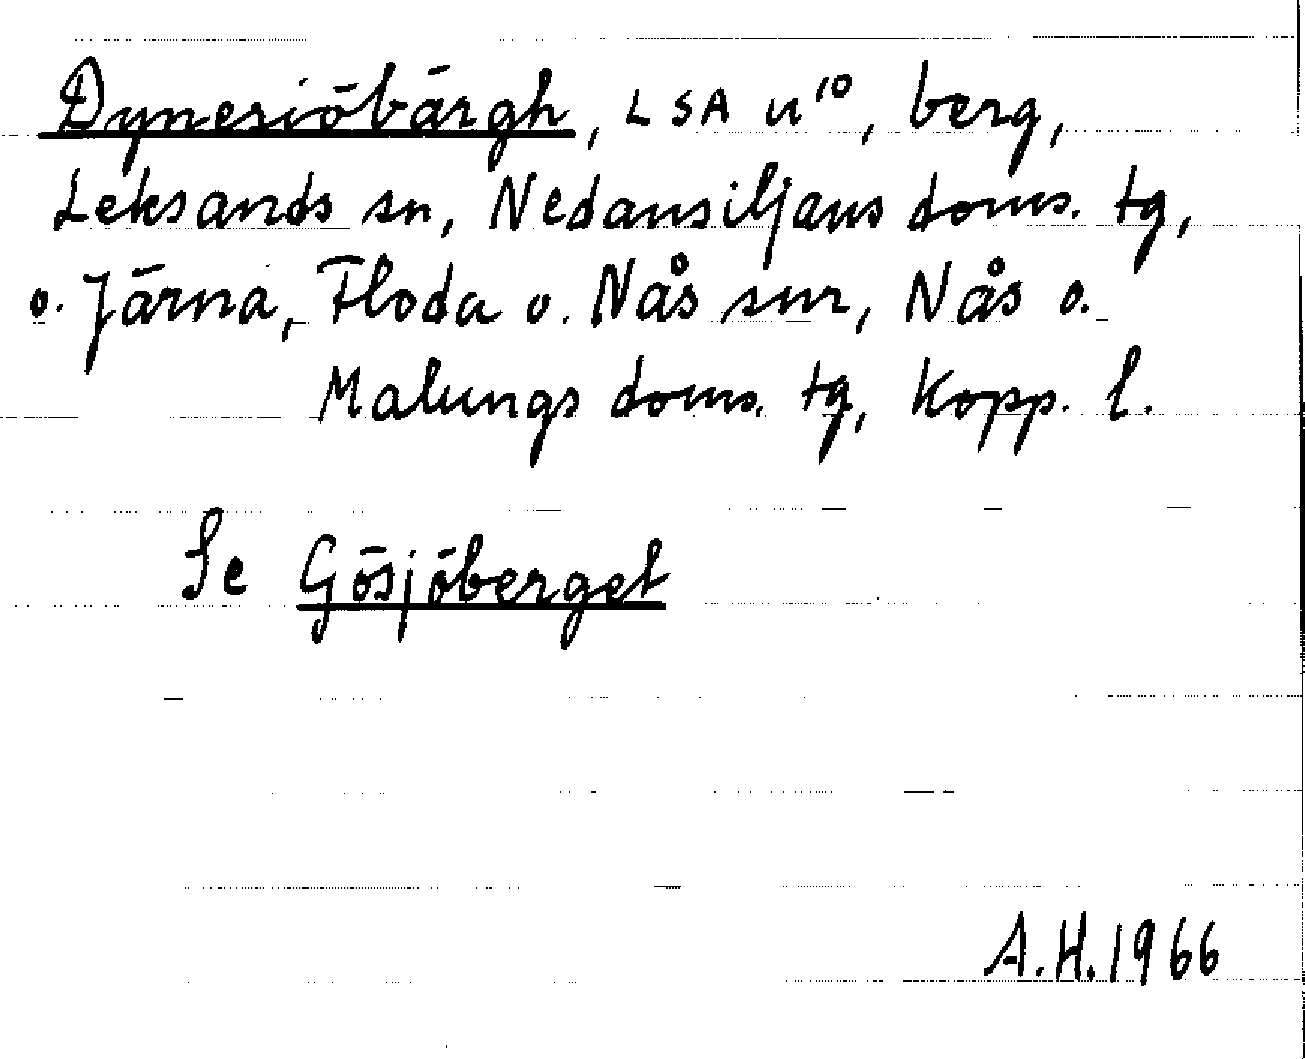 Dynesiöbärgh, LSA u¹⁰, berg,
Leksands sn, Nedansiljans doms. tg,
o. Järna, Floda o. Nås snr, Nås o.
Malungs doms. tg, Kopp. l.
Se Gösjöberget
A.H. 1966